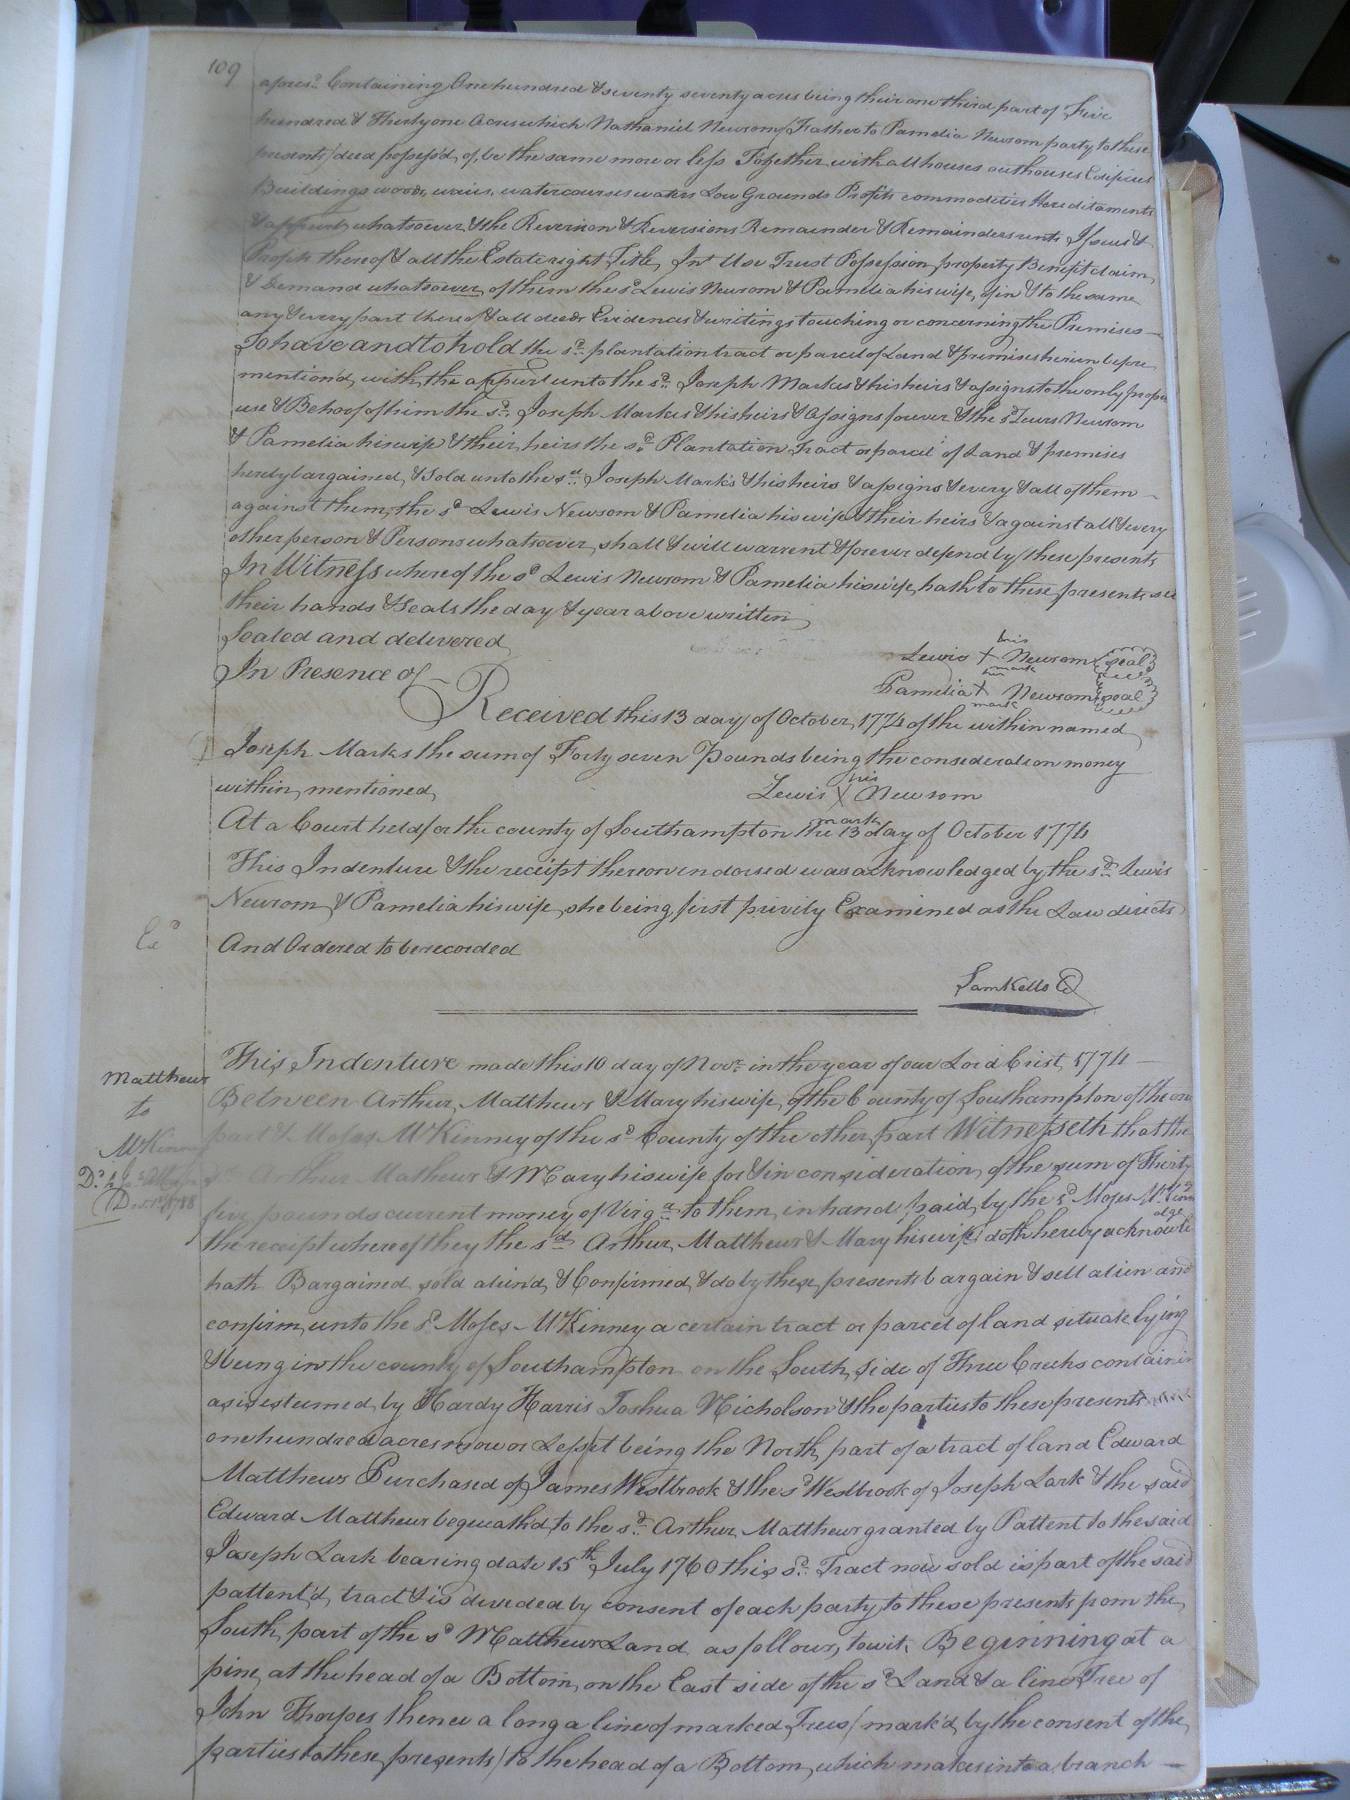 109
afores.d Containing One hundred & seventy seventy acres being their one third part of Five
hundred & Thirty one Acres which Nathaniel Newsom / Father to Pamelia Newsom party to these
presents / died possess'd of, be the same more or less Together with all houses outhouses Edifices
Buildings woods, ways, watercourses waters Low Grounds Profits commodities Hereditaments
& appurts whatsoever & the Reversion & Reversions Remainder & Remainders rents Issues &
Profits thereof & all the Estate right Title, Int Use Trust Possession property Benefit claim
& Demand whatsoever, of them the sd Lewis Newsom & Pamelia his wife, of in & to the same
any & every part thereof & all deeds Evidences & writings touching or concerning the Premises —
To have and to hold the s.d plantation tract or parcel of Land & premises herein before
mention'd, with the appurt unto the s.d Joseph Marks & his heirs & assigns to the only proper
use & Behoof of him the s.d Joseph Marks & his heirs & Assigns forever & the sd Lewis Newsom
& Pamelia his wife & their heirs the s.d Plantation Tract or parcel of Land & premises
hereby bargained, & Sold unto the s.d Joseph Marks & his heirs & assigns & every & all of them —
against them, the sd Lewis Newsom & Pamelia his wife & their heirs & against all & every
other person & Persons whatsoever, shall & will warrent & forever defend by these presents
In Witness whereof the sd Lewis Newsom & Pamelia his wife, hath to these presents set
their hands & Seals the day & year above written
Sealed and delivered
In Presence of —
his
Lewis X Newsom (seal)
mark
her
Pamelia X Newsom (seal)
mark
Received this 13 day of October 1774 of the within named
Joseph Marks the sum of Forty seven Pounds being the consideration money
within mentioned
his
Lewis X Newsom
mark
At a Court held for the county of Southampton the 13 day of October 1774
This Indenture & the receipt thereon endorsed was acknowledged by the s.d Lewis
Newsom & Pamelia his wife, she being first privily Examined as the Law directs
And Ordered to be recorded
Exd
Sam Kello C
Matthews
to
McKinney
This Indenture made this 10 day of Novr. in the year of our Lord Crist 1774 —
Between Arthur Matthews & Mary his wife, of the County of Southampton of the one
part & Moses McKinney of the sd County of the other part Witnesseth that the
sd Arthur Mathews & Mary his wife for & in consideration of the sum of Thirty
five pounds current money of Virga. to them in hand paid, by the sd Moses McKinney
the receipt whereof they the s.d Arthur Matthews & Mary his wife, doth hereby acknowledge
hath Bargained, sold alien'd, & Confirmed, & do by these presents bargain & sell alien and
confirm, unto the sd Moses McKinney a certain tract or parcel of land situate lying
& being in the county of Southampton on the South Side of Three Creeks containing
as is esteemed, by Hardy Harris Joshua Nicholson & the parties to these presents
one hundred acres more or Less, it being the North part of a tract of land Edward
Matthews Purchased of James Westbrook & the sd Westbrook of Joseph Lark & the said
Edward Matthews bequeath'd to the s.d Arthur Matthews granted by Pattent to the said
Joseph Lark bearing date 15th July 1760 this s.d Tract now sold is part of the said
pattent'd, tract & is devided by consent of each party to these presents from the
South part of the sd Matthews Land as follows, towit, Beginning at a
pine, at the head of a Bottom, on the East side of the sd Land & a line Tree of
John Thorpes thence a long a line of marked Trees / mark'd, by the consent of the
parties to these presents / to the head of a Bottom, which makes into a branch —